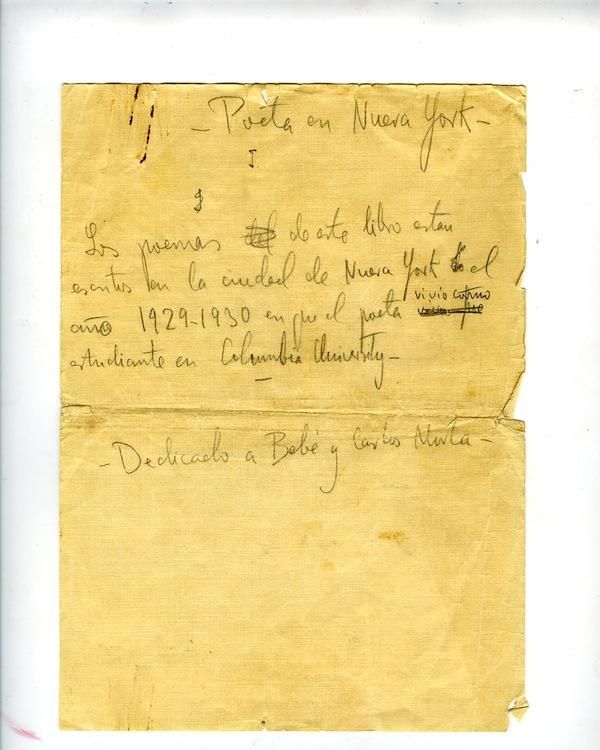 - Poeta en Nueva York -
I
Los poemas de este libro están
escritos en la ciudad de Nueva York el
año 1929-1930 en que el poeta vivió como
estudiante en Columbia University -
- Dedicado a Bebé y Carlos Morla -